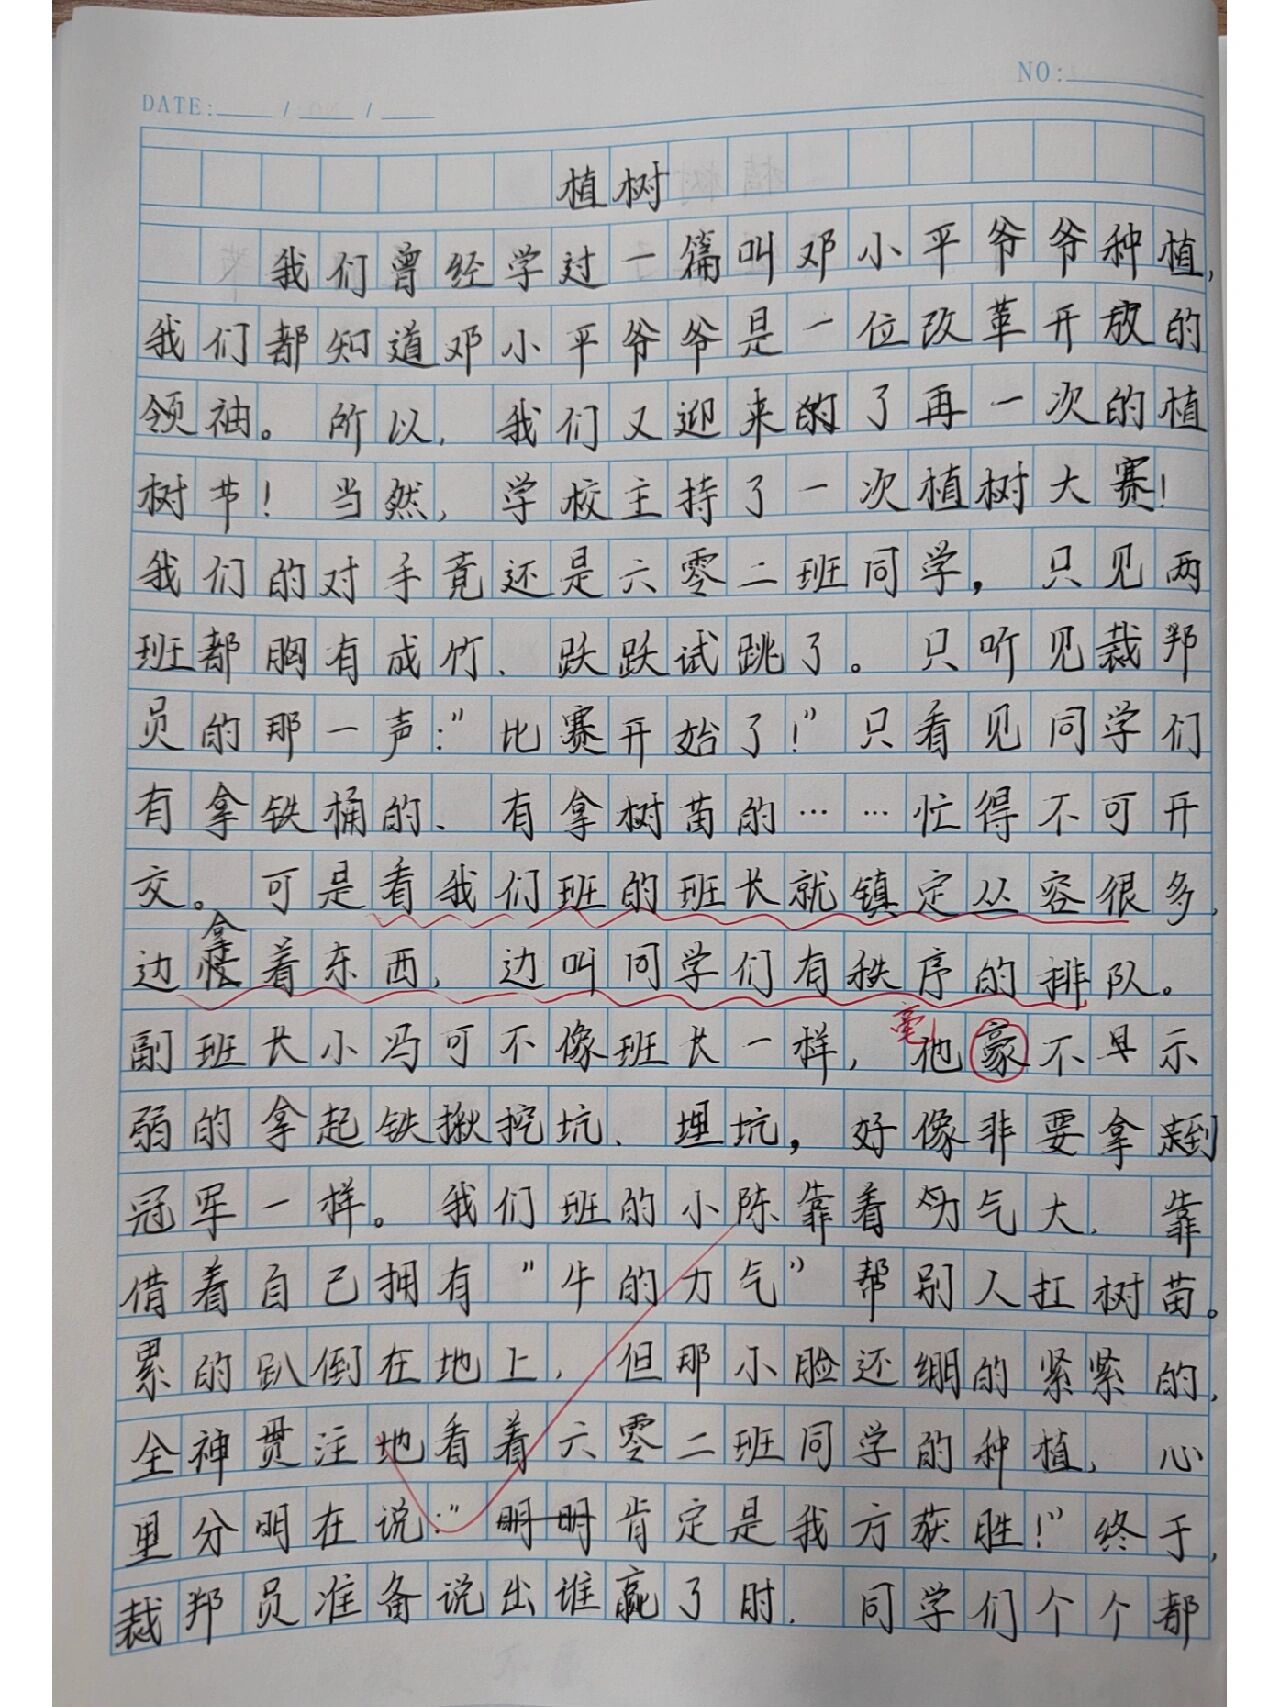 NO:
DATE: / /
植树
我们曾经学过一篇叫邓小平爷爷种植,
我们都知道邓小平爷爷是一位改革开放的
领袖。所以,我们又迎来的了再一次的植
树节!当然,学校主持了一次植树大赛!
我们的对手竟还是六零二班同学,只见两
班都胸有成竹、跃跃试跳了。只听见裁邦
员的那一声:"比赛开始了!"只看见同学们
有拿铁桶的、有拿树苗的……忙得不可开
交。可是看我们班的班长就镇定丛容很多,
拿
边着东西,边叫同学们有秩序的排队。
毫
副班长小冯可不像班长一样,他豪不具示
弱的拿起铁揪挖坑、埋坑,好像非要拿到
冠军一样。我们班的小陈靠着力气大、靠
借着自己拥有"牛的力气"帮别人扛树苗。
累的趴倒在地上,但那小脸还绷的紧紧的,
全神贯注地看着六零二班同学的种植,心
里分明在说:"明明肯定是我方获胜!"终于,
裁邦员准备说出谁赢了时,同学们个个都